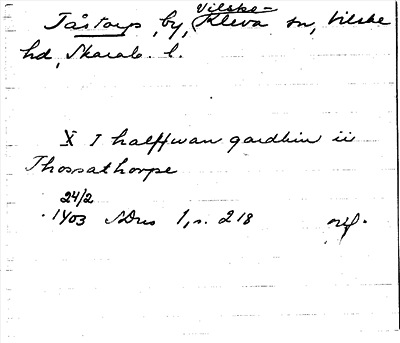 Tåstorp, by, Vilske-Kleva sn, Vilske
hd, Skarab. l.
X I halffwan gardhin ii
Thossathorpe
24/2
1403 SDns 1, s. 218